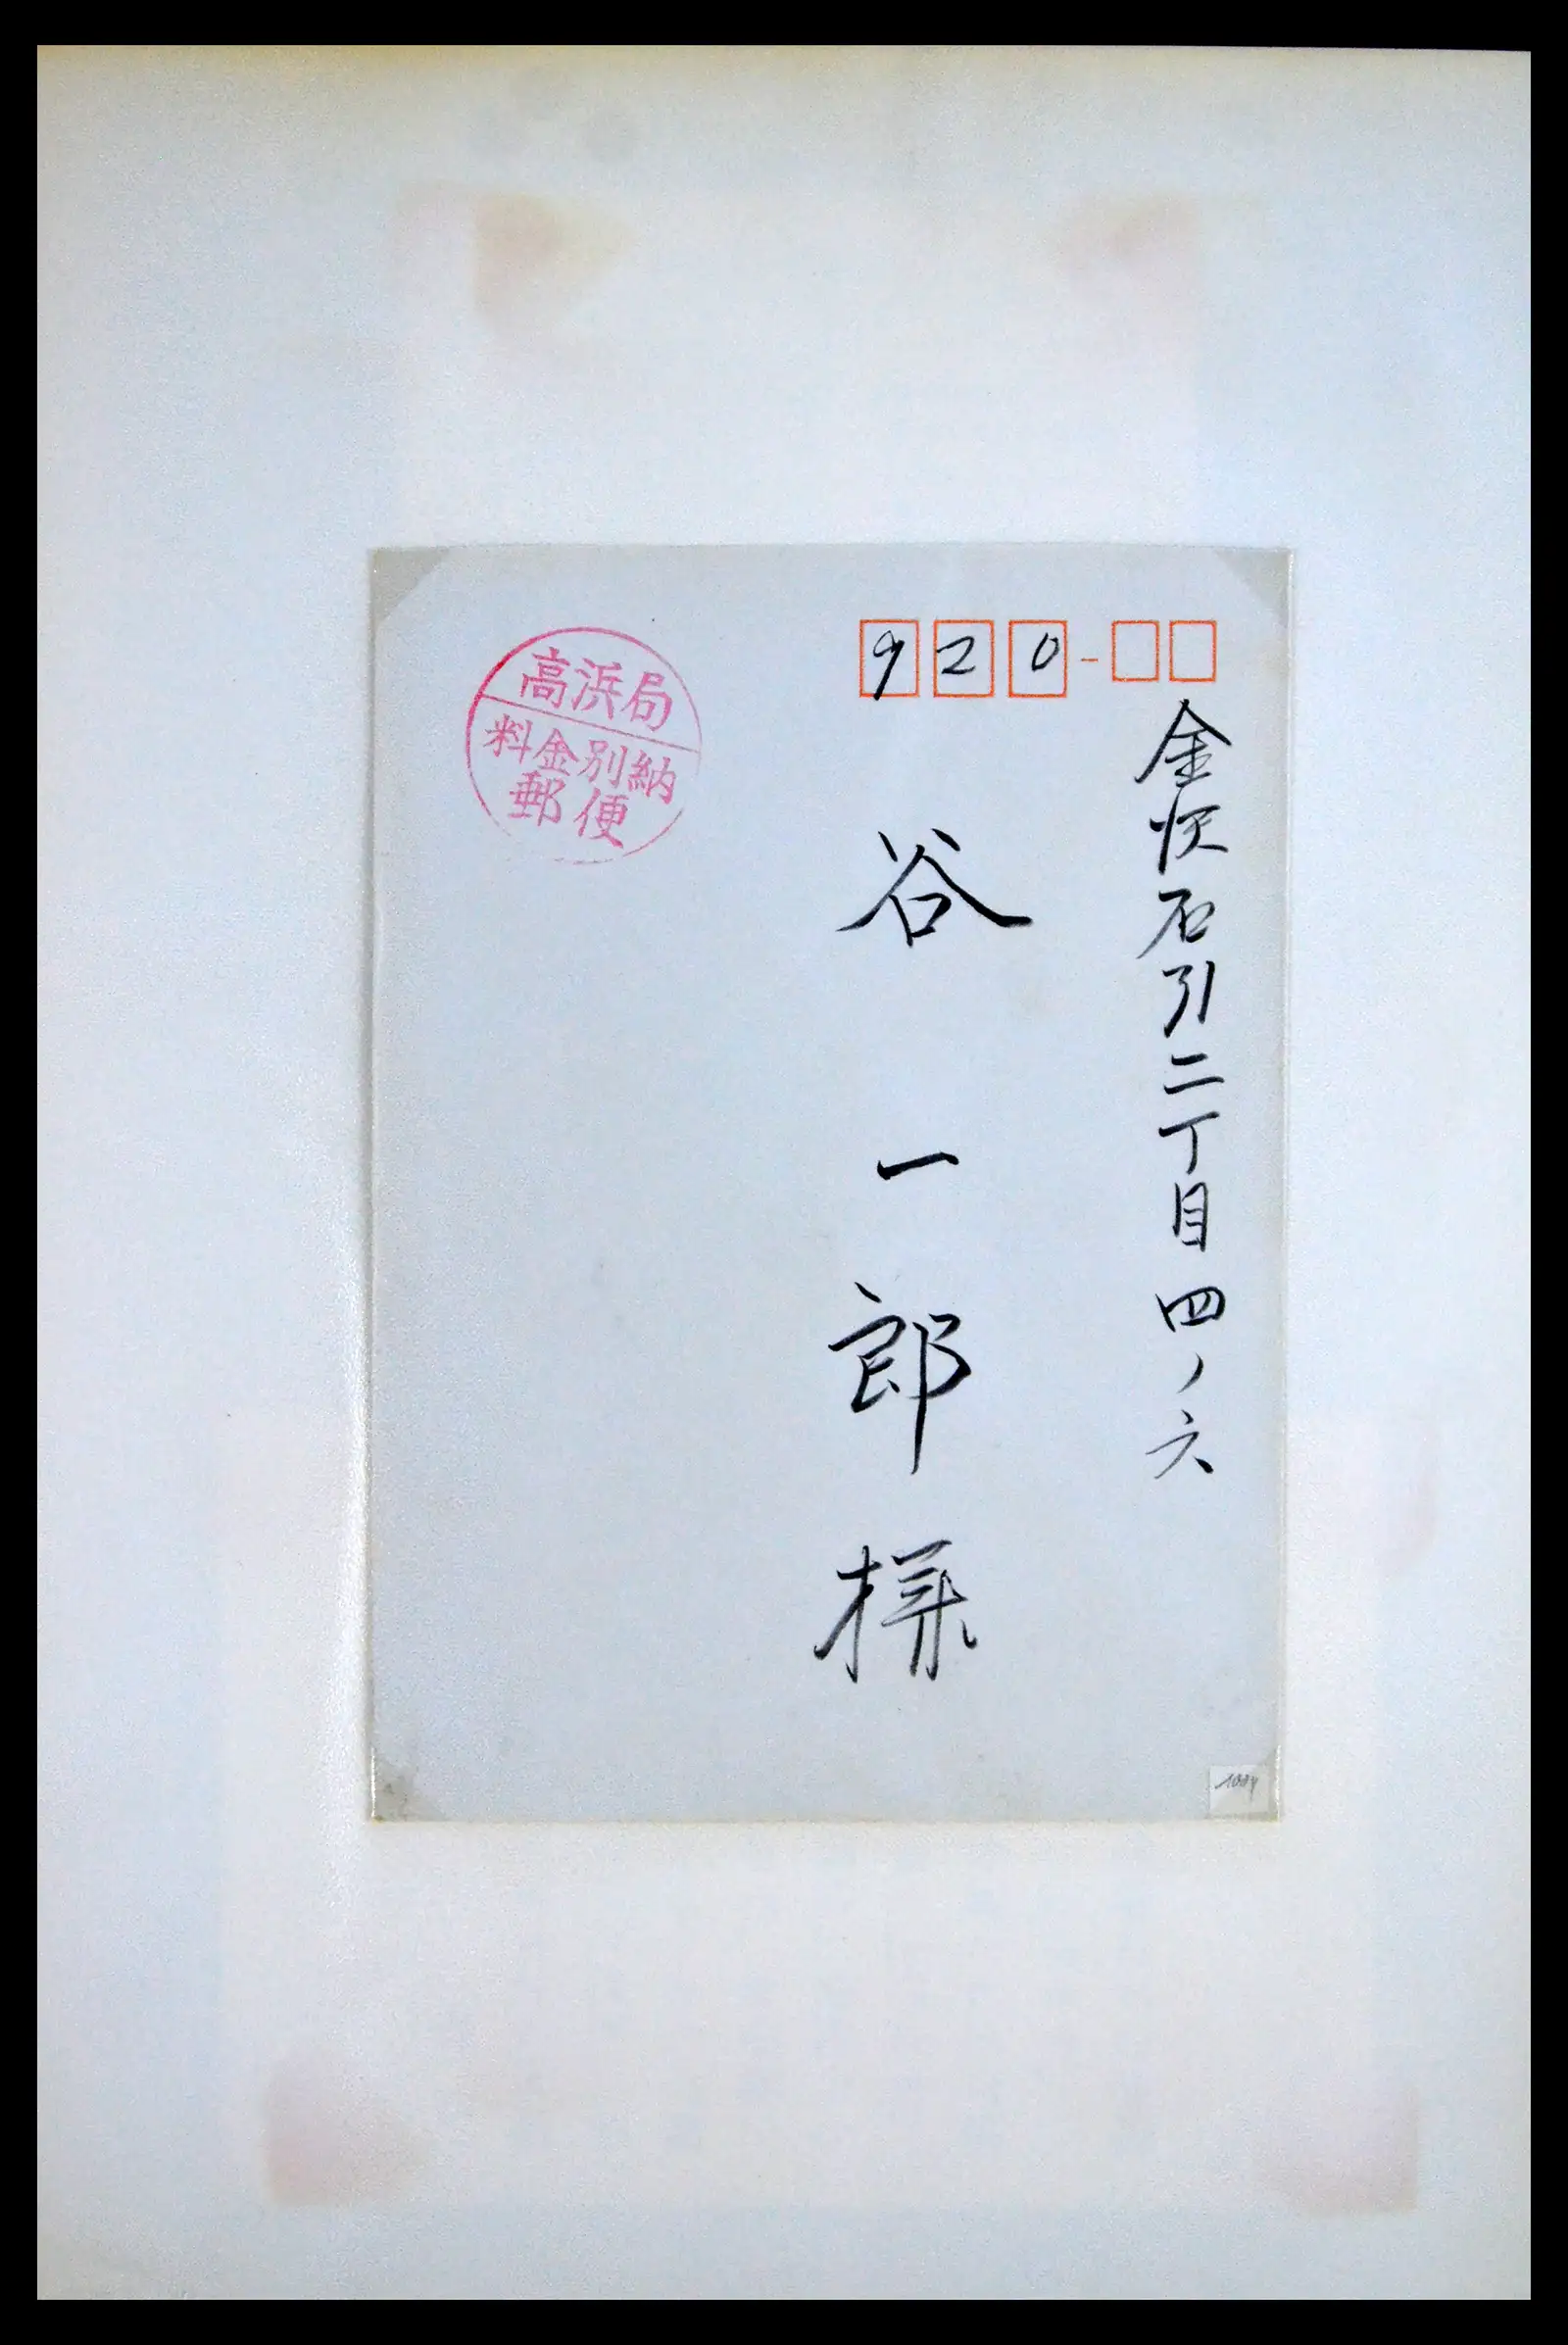 920-
金沢石引二丁目四ノ六
谷一郎様
高浜局
料金別納
郵便